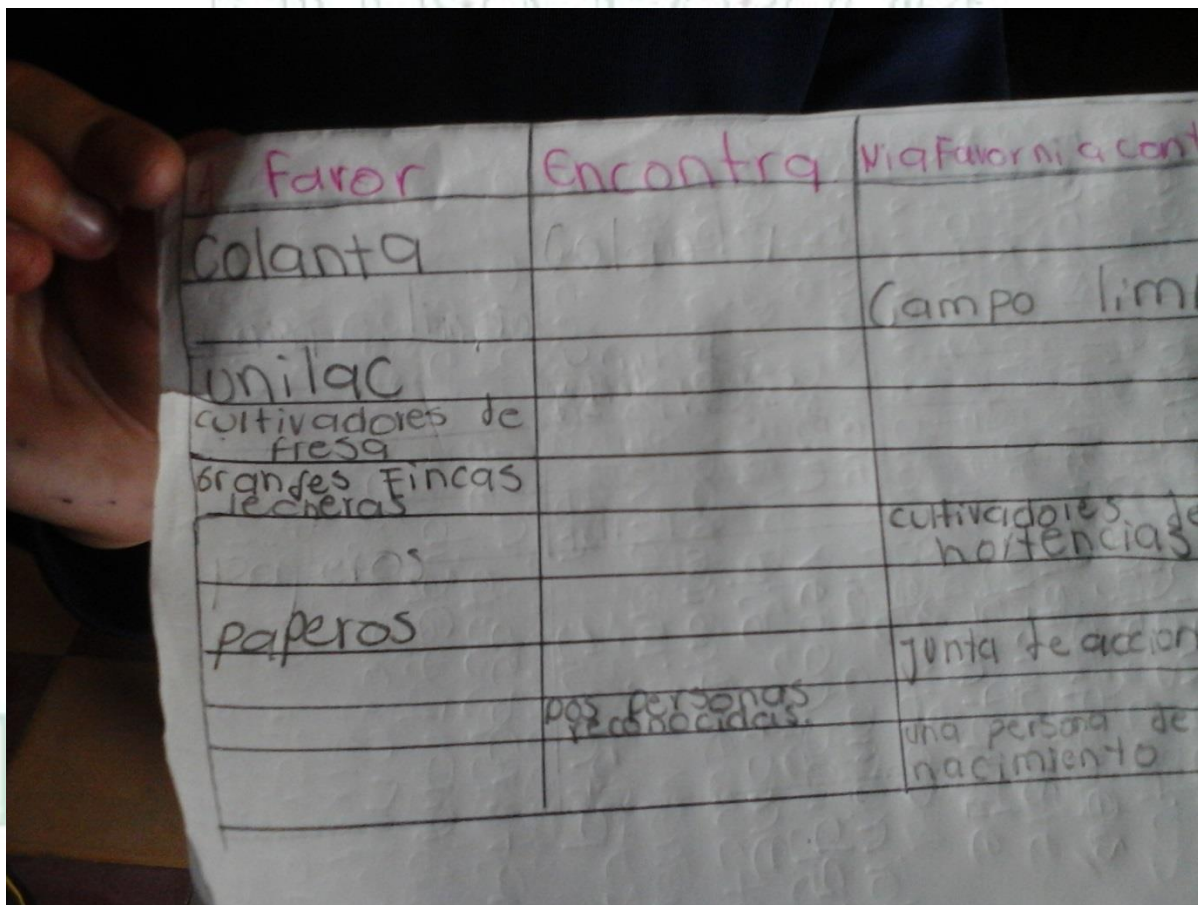 A Favor Encontra Ni a Favor ni a cont
Colanta
Campo lim
Unilac
cultivadores de
fresa
Grandes Fincas
lecheras
cultivadores de
hortencias
paperos
Junta de accion
Dos personas
reconocidas.
una persona de
nacimiento